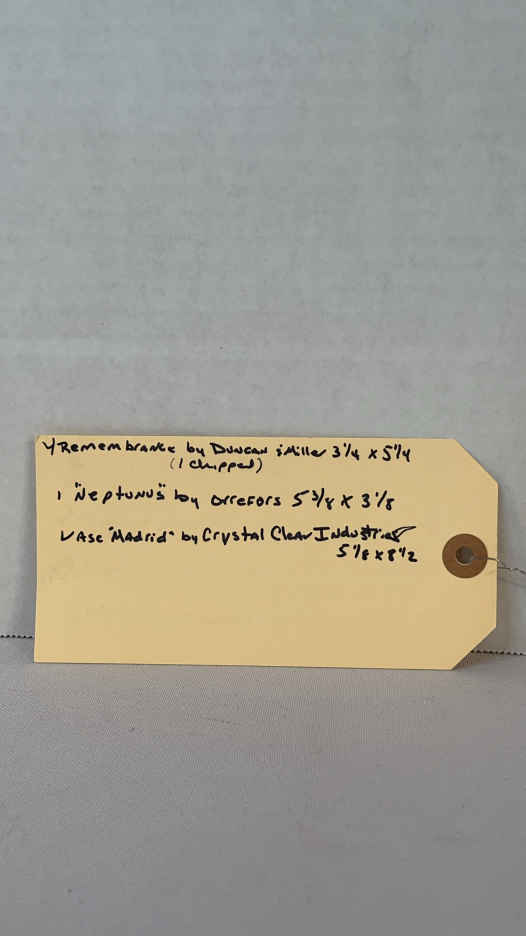 4 Remembrance by Duncan & Miller 3 1/4 x 5 1/4
(1 chipped)
1 "Neptunus" by Orrefors 5 3/8 x 3 1/8
Vase "Madrid" by Crystal Clear Industries
5 1/8 x 8 1/2